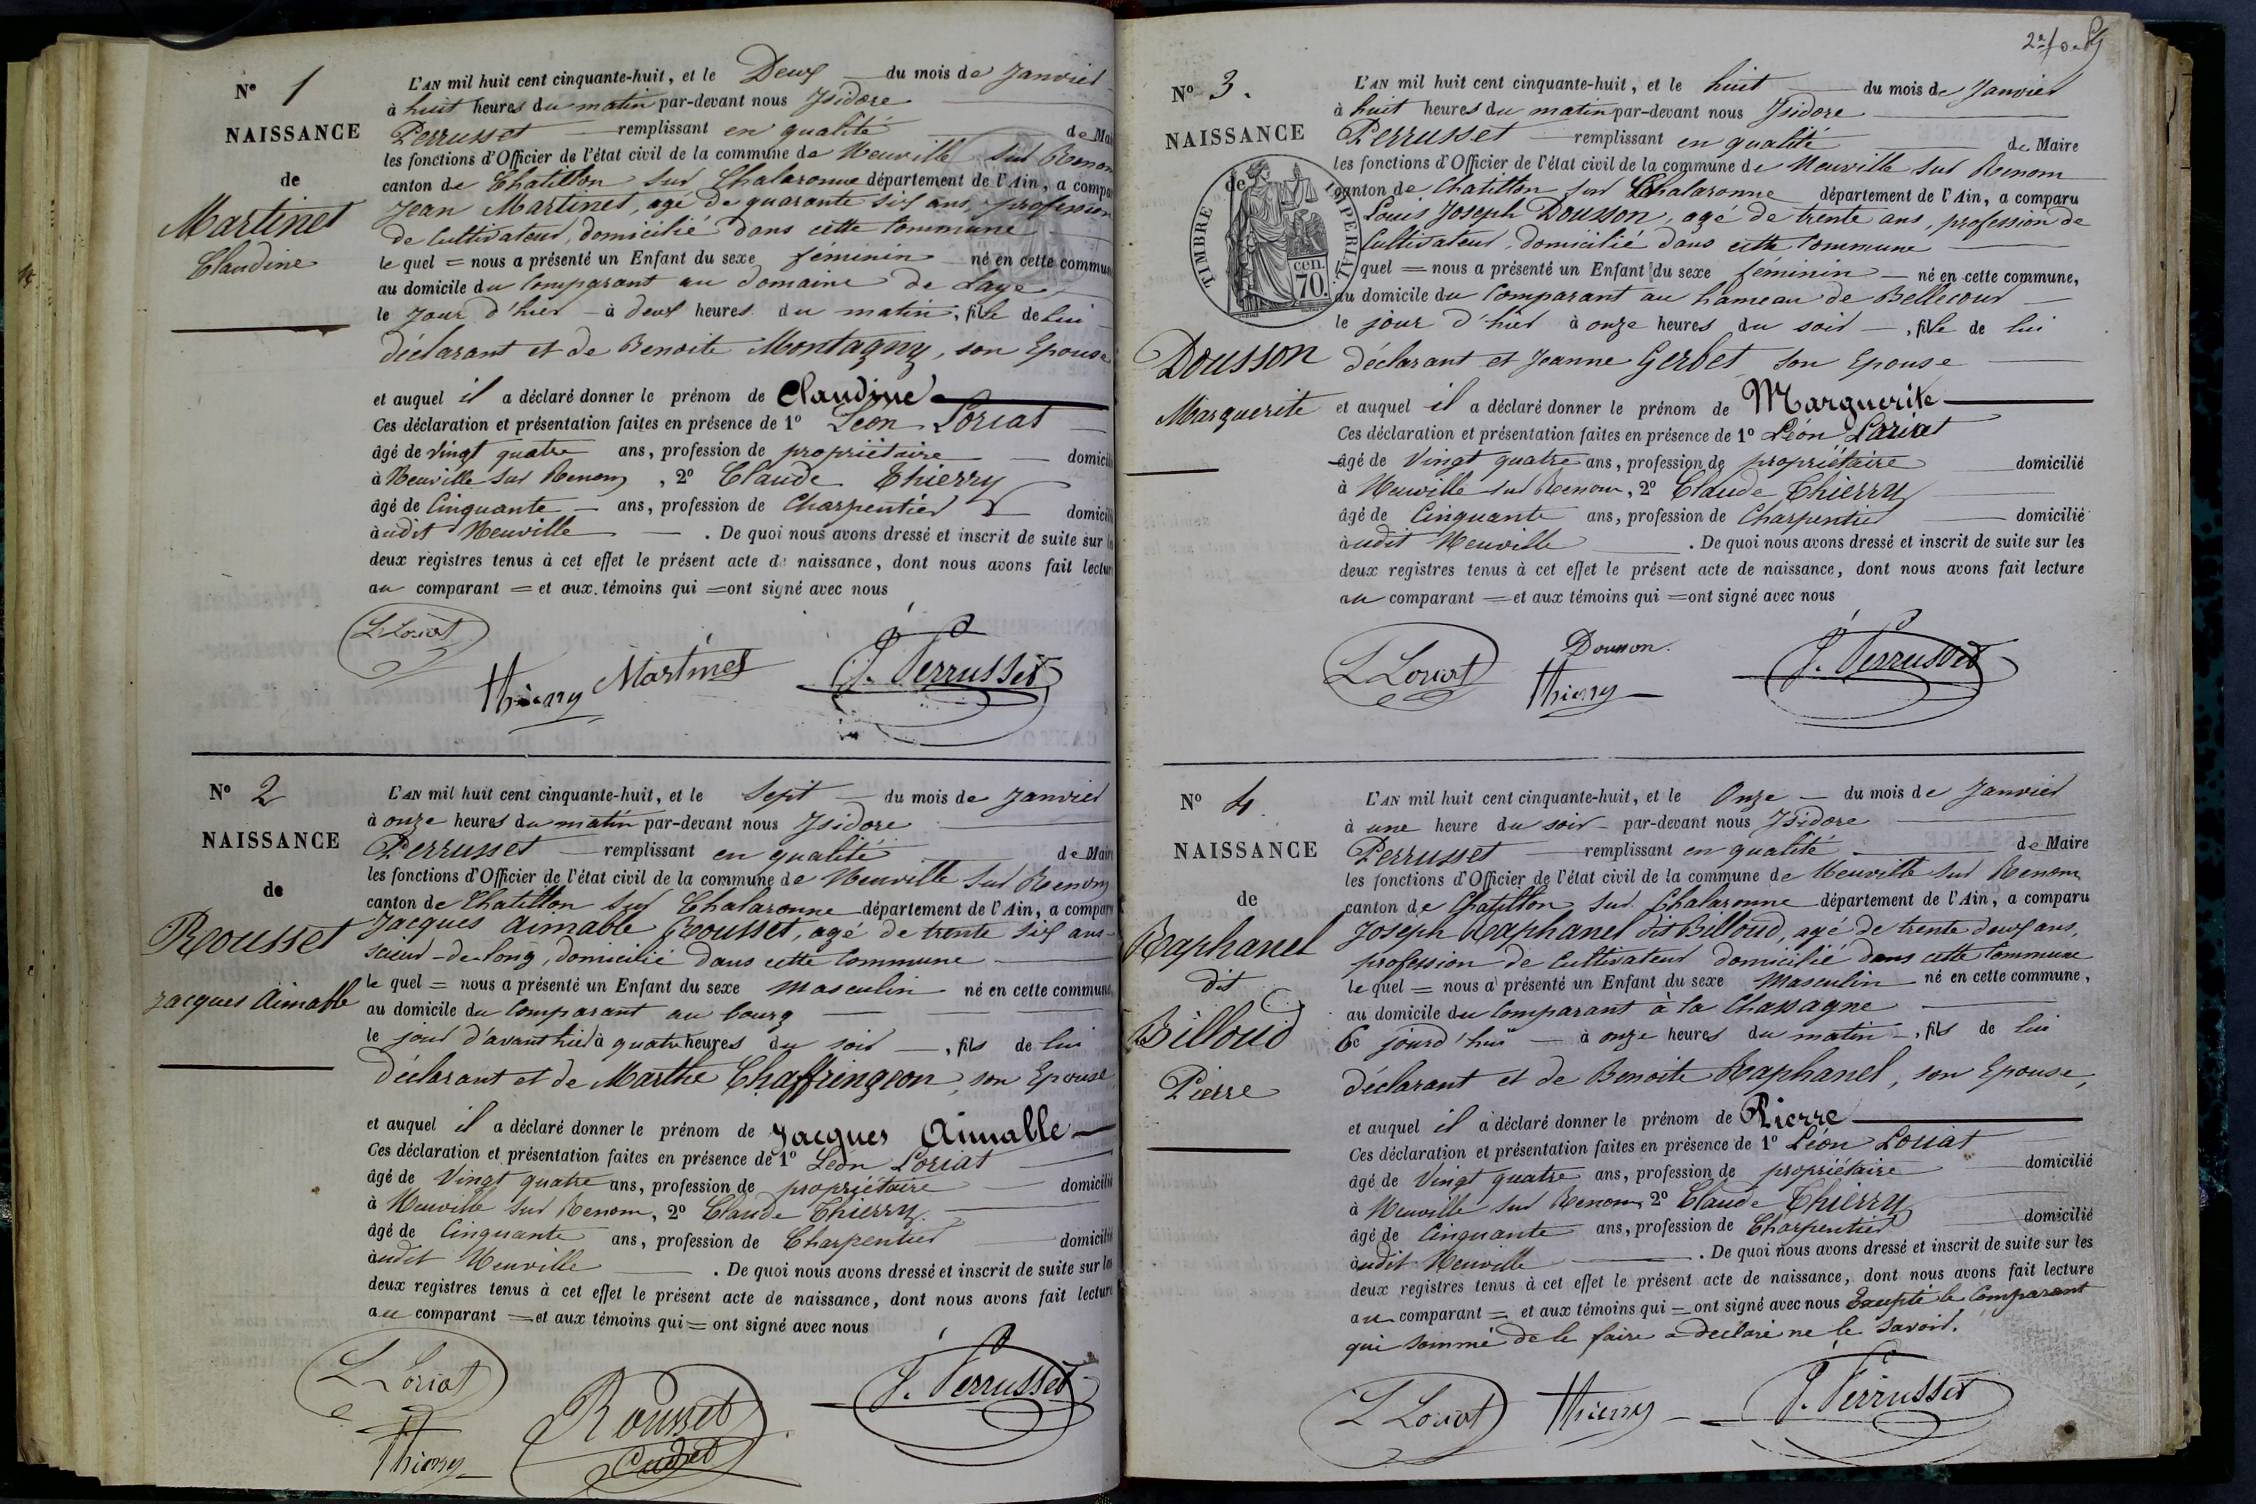 N° 1
NAISSANCE
de
Martinet
Claudine
L'AN mil huit cent cinquante-huit, et le Deux du mois de Janvier
à huit heures du matin par-devant nous Isidore
Perrusset remplissant en qualité de Mai
les fonctions d'Officier de l'état civil de la commune de Neuville sur Renom
canton de Chatillon sur Chalaronne département de l'Ain, a compa
Jean Martinet, agé de quarante six ans, profession
de Cultivateur, domicilié dans cette Commune
le quel = nous a présenté un Enfant du sexe féminin né en cette commun
au domicile du Comparant au domaine de Laye
le Jour d'hier à deux heures du matin, fille de lui
déclarant et de Benoite Montagny, son Epouse
et auquel il a déclaré donner le prénom de Claudine
Ces déclaration et présentation faites en présence de 1° Léon Loriat
âgé de Vingt quatre ans, profession de propriétaire domicili
à Neuville sur Renom, 2° Claude Thierry
âgé de Cinquante ans, profession de Charpentier domicili
audit Neuville. De quoi nous avons dressé et inscrit de suite sur l
deux registres tenus à cet effet le présent acte de naissance, dont nous avons fait lectur
au comparant = et aux témoins qui = ont signé avec nous
L Loriat
Thierry Martinet J. Perrusset
N° 2
NAISSANCE
de
Rousset
Jacques Aimable
L'AN mil huit cent cinquante-huit, et le Sept du mois de Janvier
à onze heures du matin par-devant nous Isidore
Perrusset remplissant en qualité de Mair
les fonctions d'Officier de l'état civil de la commune de Neuville sur Renom
canton de Chatillon sur Chalaronne département de l'Ain, a comparu
Jacques Aimable Rousset, agé de trente six ans
scieur-de-long, domicilié dans cette Commune
le quel = nous a présenté un Enfant du sexe Masculin né en cette commune
au domicile du Comparant au bourg
le jour d'avant hier à quatre heures du soir, fils de lui
déclarant et de Marthe Chaffringeon, son Epouse
et auquel il a déclaré donner le prénom de Jacques Aimable
Ces déclaration et présentation faites en présence de 1° Léon Loriat
âgé de Vingt quatre ans, profession de propriétaire domicilié
à Neuville sur Renom, 2° Claude Thierry
âgé de Cinquante ans, profession de Charpentier domicilié
audit Neuville. De quoi nous avons dressé et inscrit de suite sur les
deux registres tenus à cet effet le présent acte de naissance, dont nous avons fait lecture
au comparant = et aux témoins qui = ont signé avec nous
L Loriat
Thierry Rousset J. Perrusset
N° 3.
NAISSANCE
de
TIMBRE IMPERIAL
cen. 70.
Dousson
Marguerite
L'AN mil huit cent cinquante-huit, et le huit du mois de Janvier
à huit heures du matin par-devant nous Isidore
Perrusset remplissant en qualité de Maire
les fonctions d'Officier de l'état civil de la commune de Neuville sur Renom
canton de Chatillon sur Chalaronne département de l'Ain, a comparu
Louis Joseph Dousson, agé de trente ans, profession de
Cultivateur, domicilié dans cette Commune
quel = nous a présenté un Enfant du sexe féminin né en cette commune,
au domicile du Comparant au hameau de Bellecour
le jour d'hier à onze heures du soir, fille de lui
déclarant et Jeanne Gerbet son Epouse
et auquel il a déclaré donner le prénom de Marguerite
Ces déclaration et présentation faites en présence de 1° Léon Loriat
âgé de Vingt quatre ans, profession de propriétaire domicilié
à Neuville sur Renom, 2° Claude Thierry
âgé de Cinquante ans, profession de Charpentier domicilié
audit Neuville. De quoi nous avons dressé et inscrit de suite sur les
deux registres tenus à cet effet le présent acte de naissance, dont nous avons fait lecture
au comparant = et aux témoins qui = ont signé avec nous
L Loriat Dousson. J. Perrusset
Thierry
N° 4.
NAISSANCE
de
Raphanel
dit
Billoud
Pierre
L'AN mil huit cent cinquante-huit, et le Onze du mois de Janvier
à une heure du soir par-devant nous Isidore
Perrusset remplissant en qualité de Maire
les fonctions d'Officier de l'état civil de la commune de Neuville sur Renom
canton de Chatillon sur Chalaronne département de l'Ain, a comparu
Joseph Raphanel dit Billoud, agé de trente deux ans,
profession de Cultivateur domicilié dans cette Commune
le quel = nous a présenté un Enfant du sexe Masculin né en cette commune,
au domicile du Comparant à la Chassagne
Ce jourd'hui à onze heures du matin, fils de lui
déclarant et de Benoite Raphanel, son Epouse,
et auquel il a déclaré donner le prénom de Pierre
Ces déclaration et présentation faites en présence de 1° Léon Loriat
âgé de Vingt quatre ans, profession de propriétaire domicilié
à Neuville sur Renom, 2° Claude Thierry
âgé de Cinquante ans, profession de Charpentier domicilié
audit Neuville. De quoi nous avons dressé et inscrit de suite sur les
deux registres tenus à cet effet le présent acte de naissance, dont nous avons fait lecture
au comparant = et aux témoins qui = ont signé avec nous Excepté le Comparant
qui sommé de le faire a déclaré ne le savoir.
L Loriat Thierry J. Perrusset